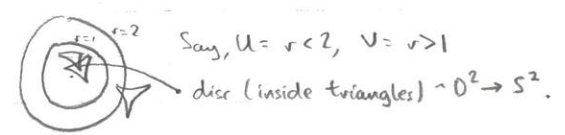 r=1 r=2
Say, U = r<2, V = r>1
disc (inside triangles) ~ D² → S².